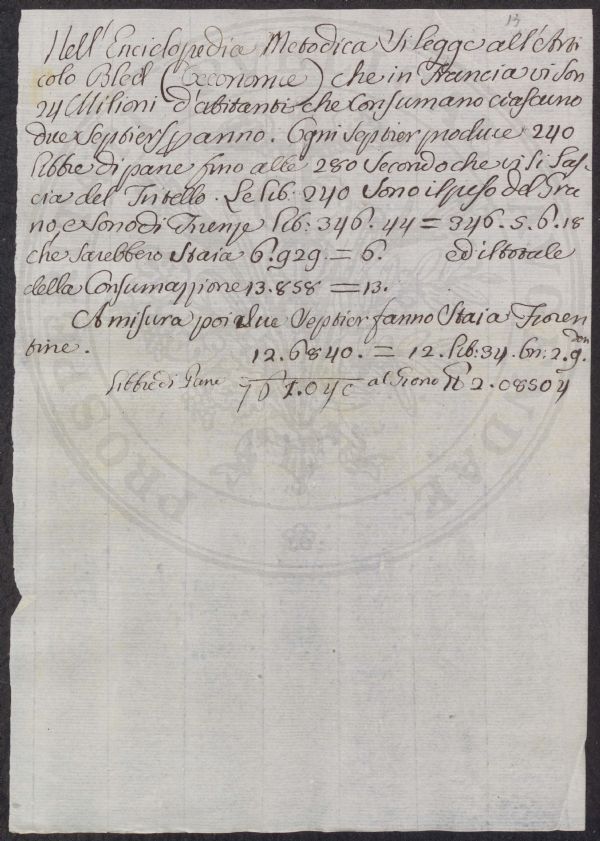 13
Nell' Enciclopedia Metodica si legge all' Arti
colo Bled (Economie) che in Francia vi son
24 Milioni d'abitanti che consumano ciascuno
due septiers p anno. Ogni septier produce 240
libbre di pane fino alle 280 secondo che vi si las-
cia del Tritello. Le lib: 240 sono il peso del Gra
no, e sono di Firenze lib: 346.44 = 346.5.6.18
che sarebbero staia 6.929. = 6. ed il totale
della Consumazzione 13.858 = 13.
A misura poi due Septier fanno Staia Fioren
tine. 12.6840. = 12. lib: 34. on: 2. 9. den
libbre di Pane 761.04 al Giorno lb 2.08504